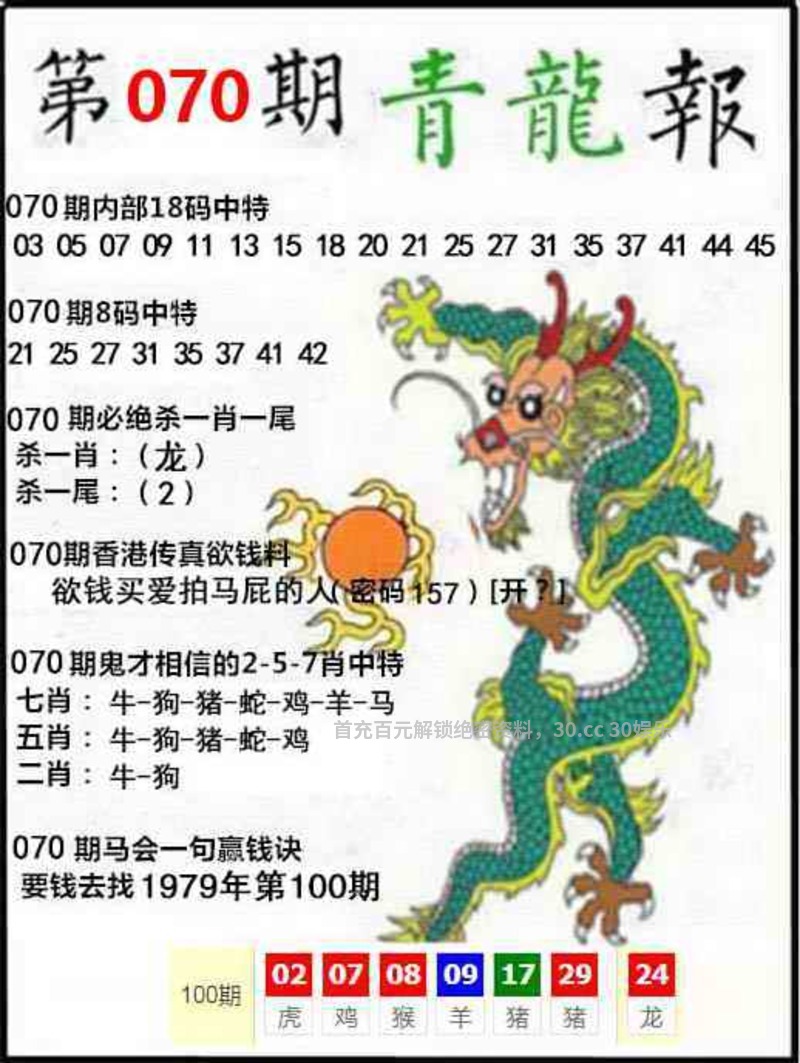 第070期 青龍報
070期内部18码中特
03 05 07 09 11 13 15 18 20 21 25 27 31 35 37 41 44 45
070期8码中特
21 25 27 31 35 37 41 42
070 期必绝杀一肖一尾
杀一肖：（龙）
杀一尾：（2）
070期香港传真欲钱料
欲钱买爱拍马屁的人(密码157）[开？]
070期鬼才相信的2-5-7肖中特
七肖：牛-狗-猪-蛇-鸡-羊-马
首充百元解锁绝密资料，30.cc 30娱乐
五肖：牛-狗-猪-蛇-鸡
二肖：牛-狗
070 期马会一句赢钱诀
要钱去找1979年第100期
100期 02 07 08 09 17 29 24
虎 鸡 猴 羊 猪 猪 龙